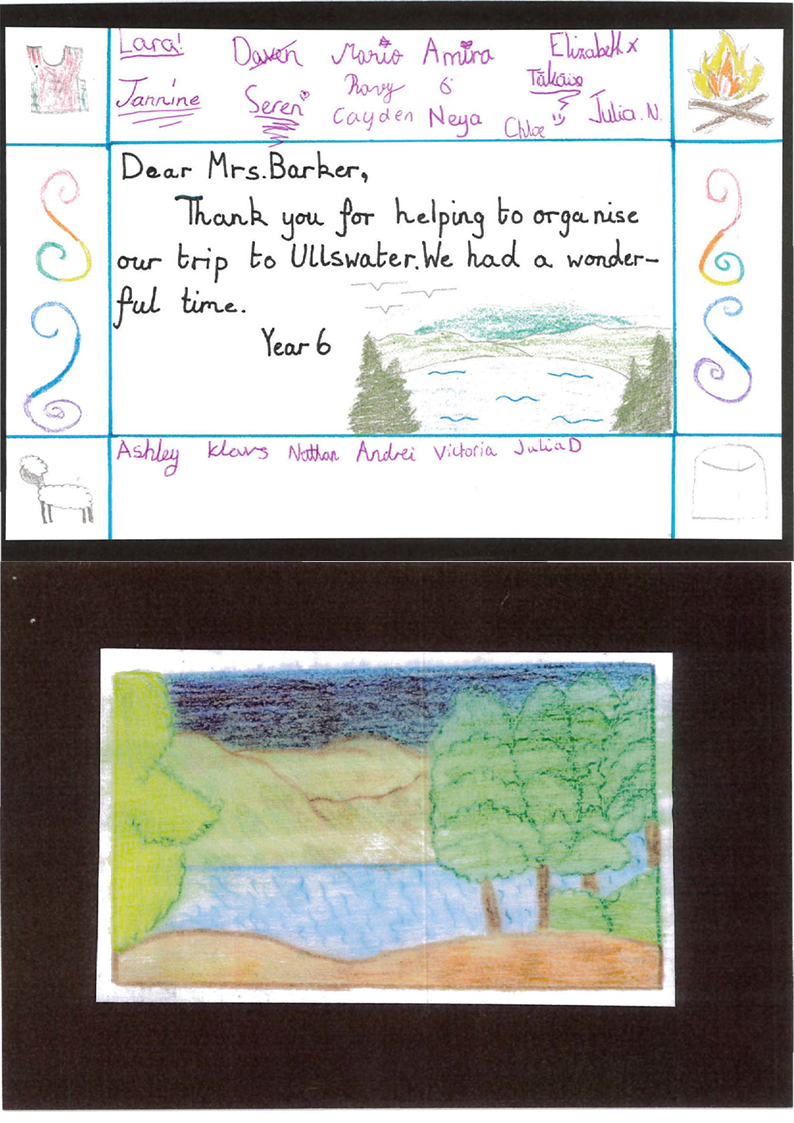 Lara! Daven Mario Amira Elizabeth x
Jannine Seren Roxy 6 Takaiso
Cayden Neya Chloe Julia.N.
Dear Mrs.Barker,
Thank you for helping to organise
our trip to Ullswater. We had a wonder-
ful time.
Year 6
Ashley Klavs Nathan Andrei Victoria Julia D